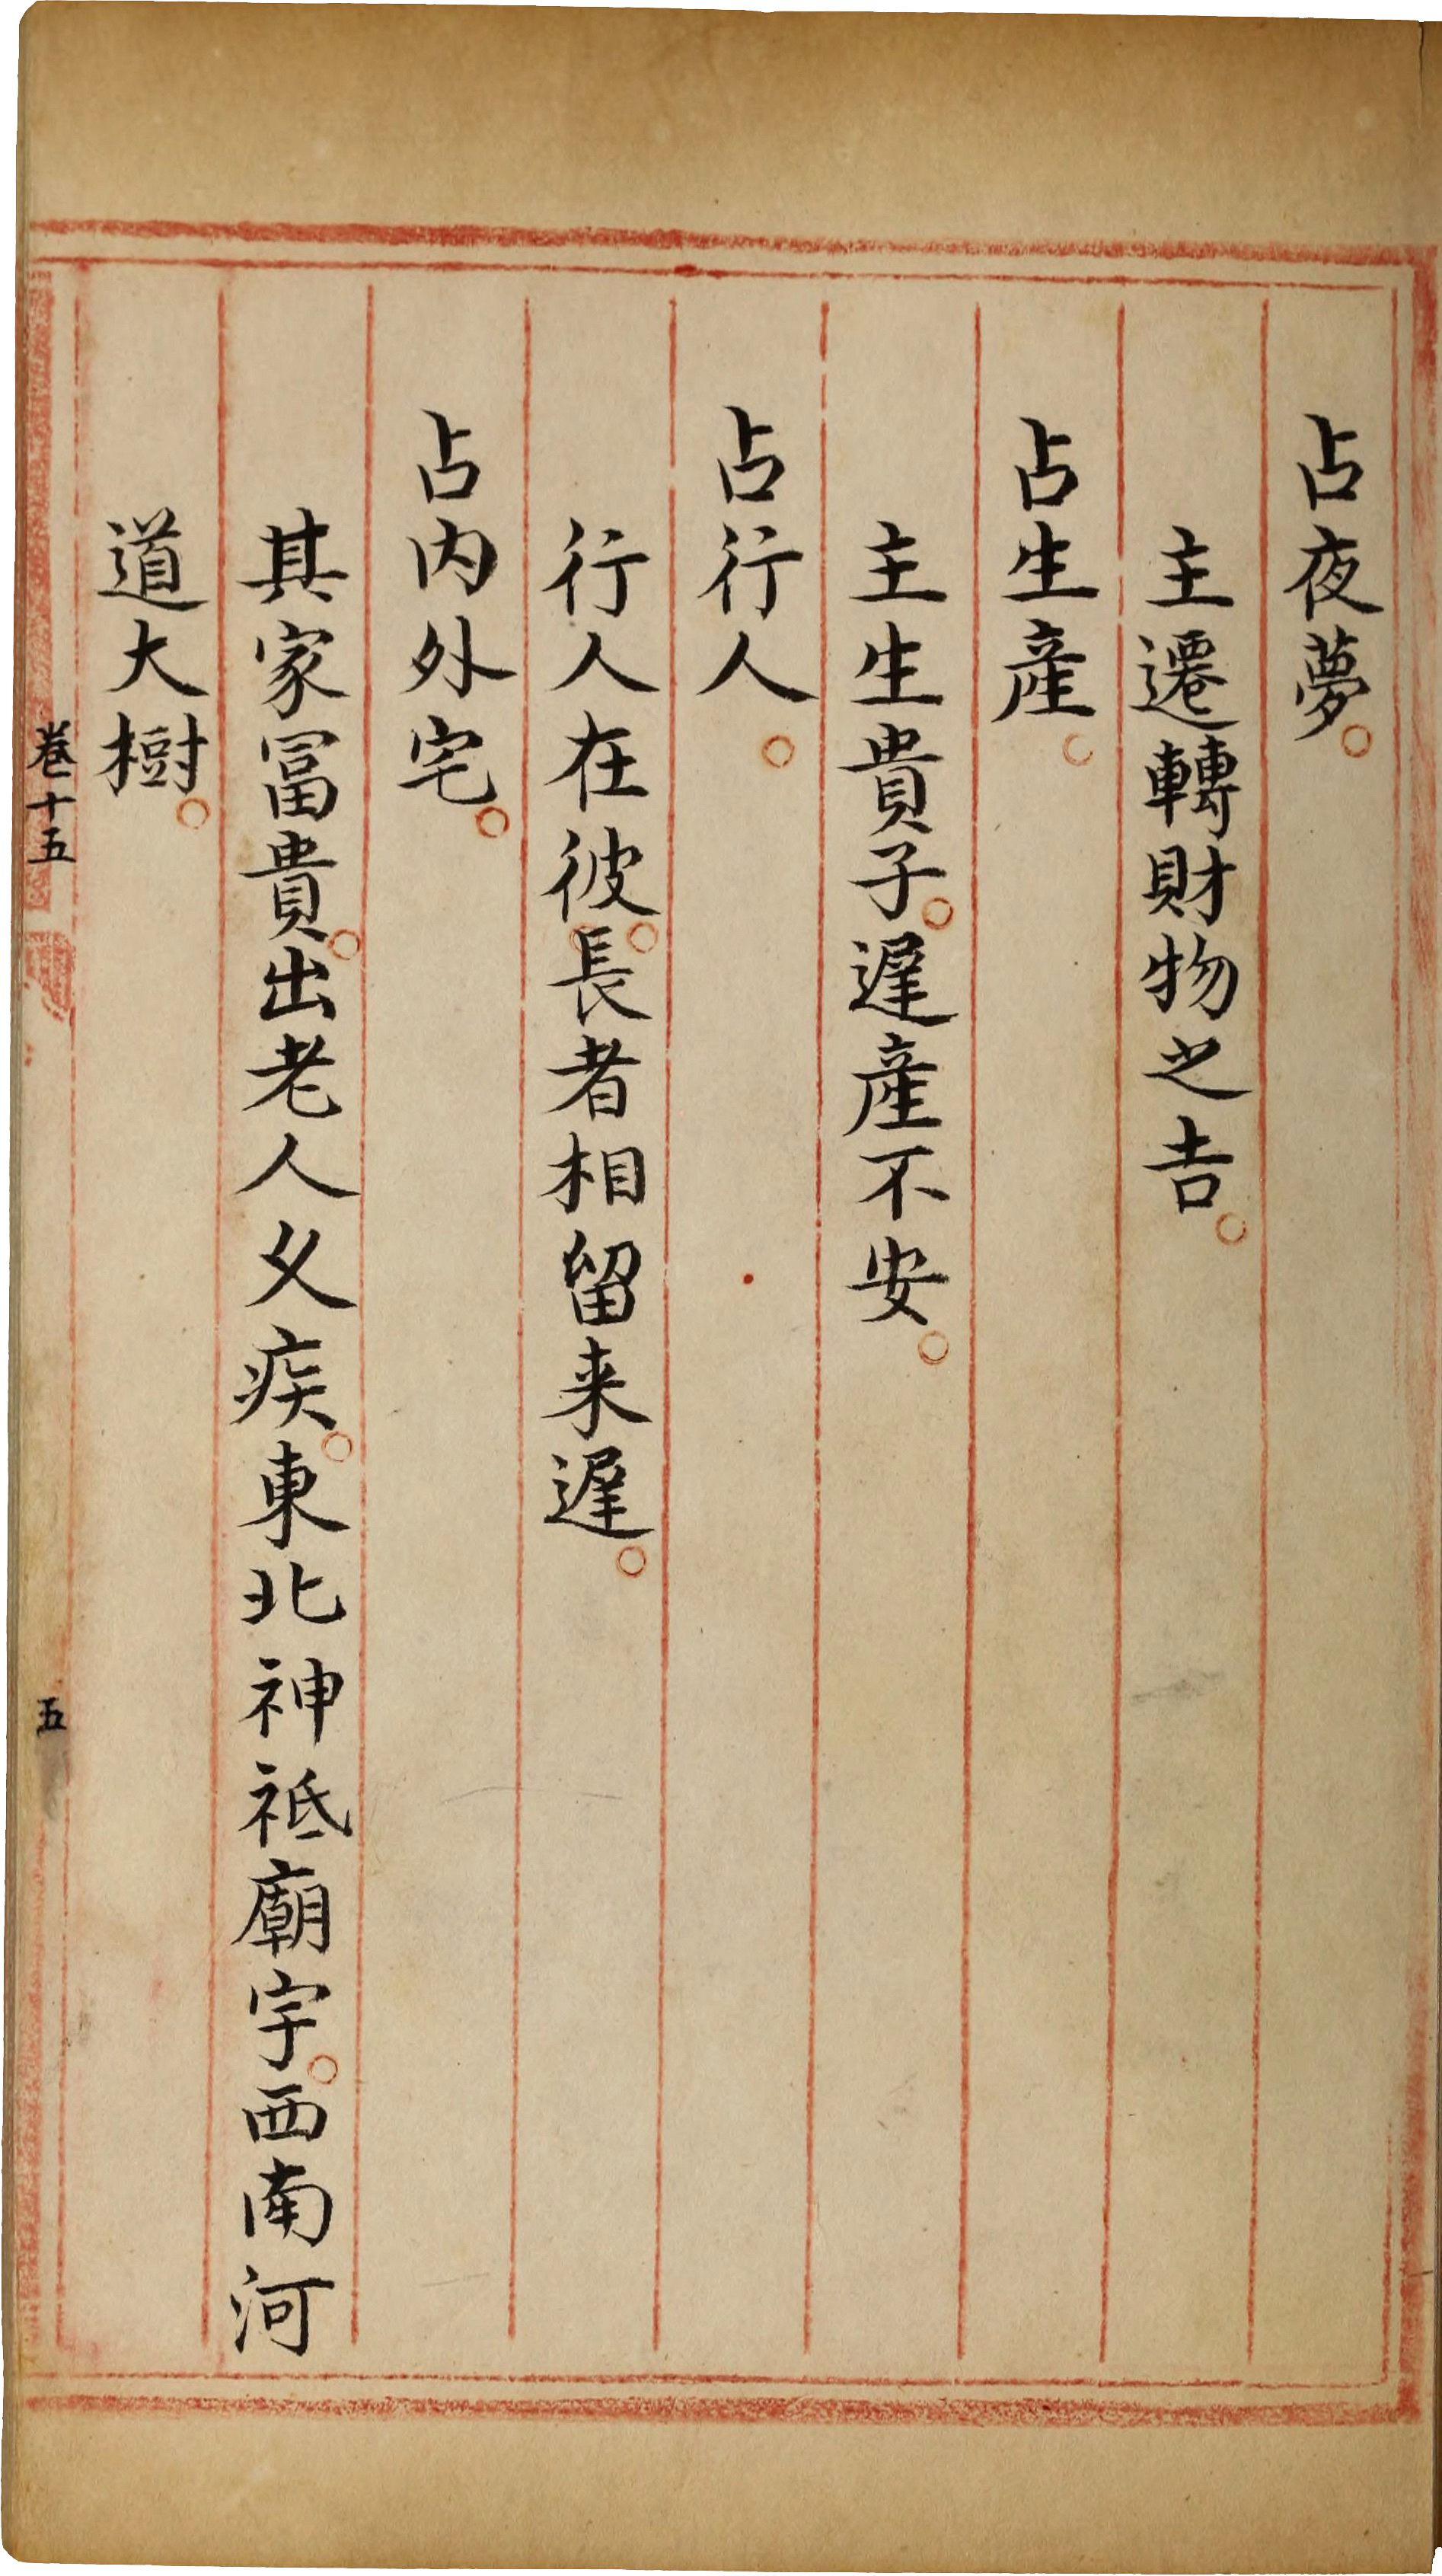 占夜夢。
主遷轉財物之吉。
占生產。
主生貴子。遲產不安。
占行人。
行人在彼。長者相留来遲。
占内外宅。
其家冨貴。出老人乆疾。東北神祇廟宇。西南河
道大樹。
卷十五
五